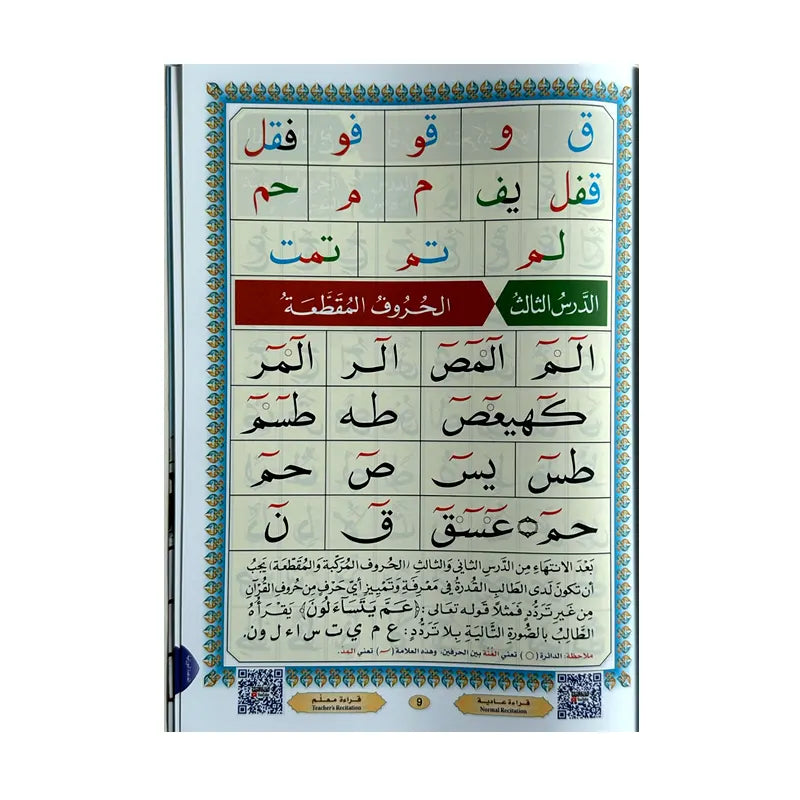 ق و قو فو فقل
قفل يف م م حم
لم تم تمت
الدَّرسُ الثالثُ الحُروفُ المُقَطَّعَةُ
الٓمٓ الٓمٓصٓ الٓر الٓمٓر
كٓهيعٓصٓ طه طسٓمٓ
طسٓ يسٓ صٓ حمٓ
حمٓ عٓسٓقٓ قٓ نٓ
بَعْدَ الانتهَاءِ مِن الدَّرسِ الثاني وَالثالثِ (الحُروف المُرَكبة وَالمُقَطّعَة) يَجبُ
أن تكونَ لَدى الطالبِ القُدرة فى مَعْرِفَةِ وَتَمْيِيزِ أيّ حَرْفٍ مِن حُروفِ القُرآنِ
مِن غَيرِ تَرَدُّدٍ فَمَثلاً قَولهُ تعَالى :﴿عَمَّ يَتَسَآءَلُونَ﴾ يَقرَأهُ
الطَّالِبُ بالصُّورَةِ التَّاليَةِ بِلا تَرَدُّدٍ: ع م ي ت س ا ء ل و ن.
ملاحظة: الدائرة (○) تعني الغُنَّة بين الحرفين، وهذه العلامة (ٓ) تعني المدّ.
قراءة معلّم 9 قراءة عادية
Teacher's Recitation Normal Recitation